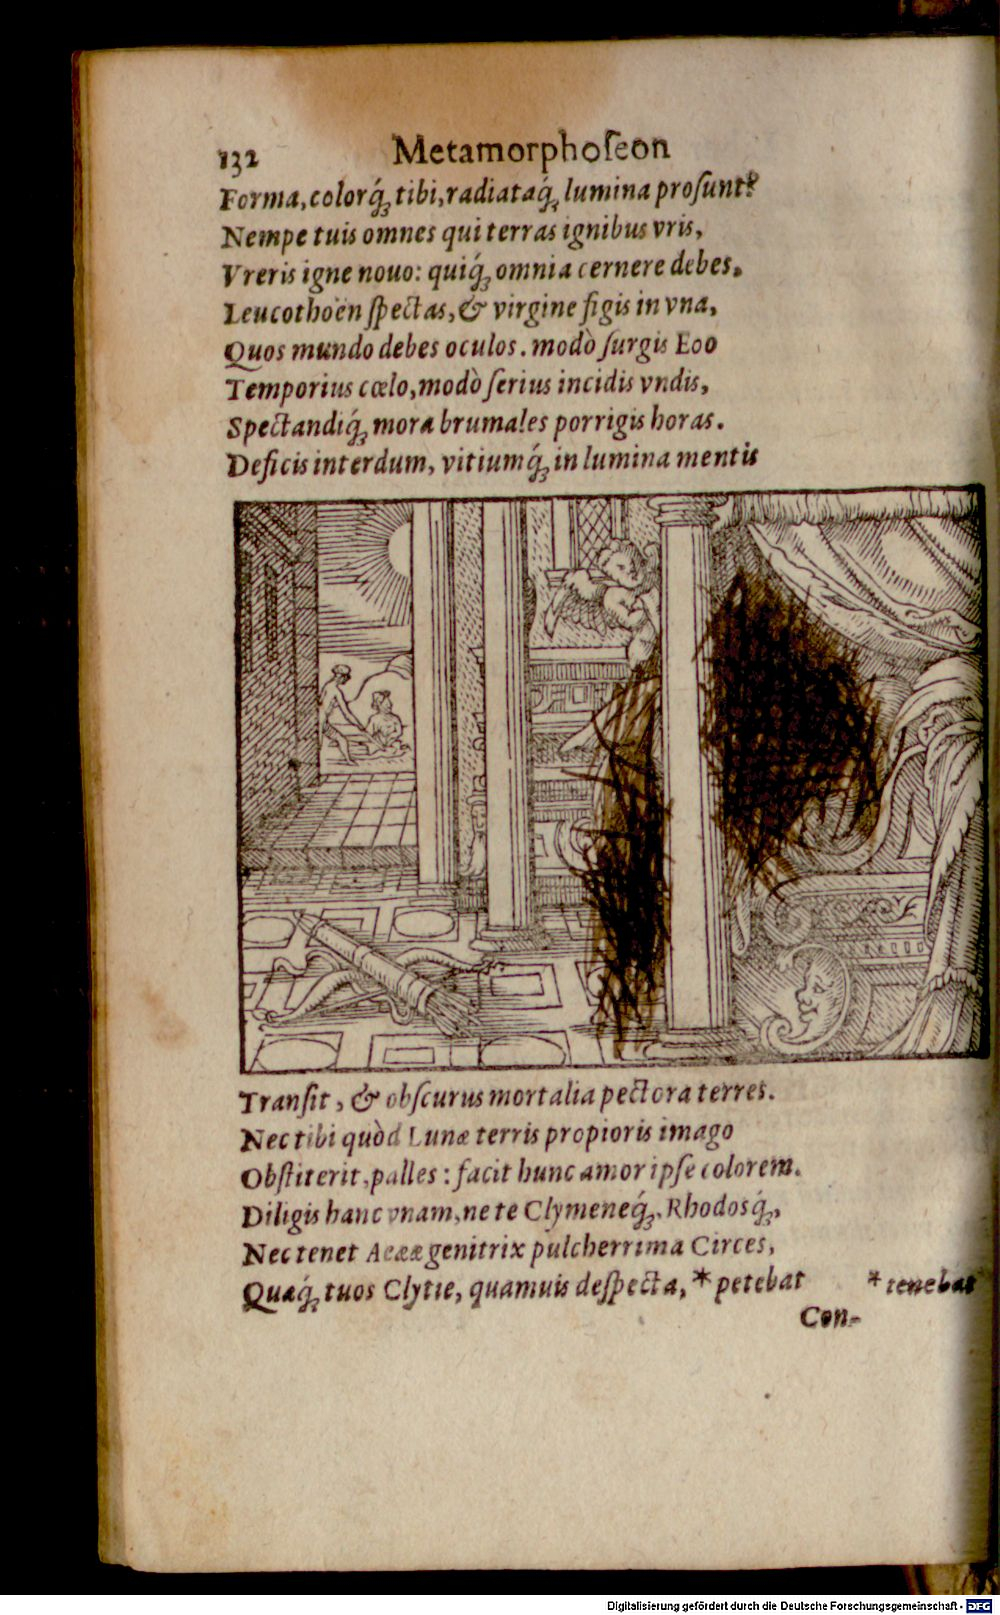 132 Metamorphoſeon
Forma, colorq́ꝫ tibi, radiataq́ꝫ lumina proſunt?
Nempe tuis omnes qui terras ignibus vris,
Vreris igne nouo: quiq́ꝫ omnia cernere debes.
Leucothoën ſpectas, & virgine figis in vna,
Quos mundo debes oculos. modò ſurgis Eoo
Temporius cœlo, modò ſerius incidis vndis,
Spectandiq́ꝫ mora brumales porrigis horas.
Deficis interdum, vitiumq́ꝫ in lumina mentis
Tranſit, & obſcurus mortalia pectora terres.
Nec tibi quòd Lunæ terris propioris imago
Obſtiterit, palles: facit hunc amor ipſe colorem.
Diligis hanc vnam, ne te Clymeneq́ꝫ, Rhodosq́ꝫ,
Nec tenet Aeææ genitrix pulcherrima Circes,
Quæq́ꝫ tuos Clytie, quamuis deſpecta, * petebat * tenebat
Con-
Digitalisierung gefördert durch die Deutsche Forschungsgemeinschaft - DFG